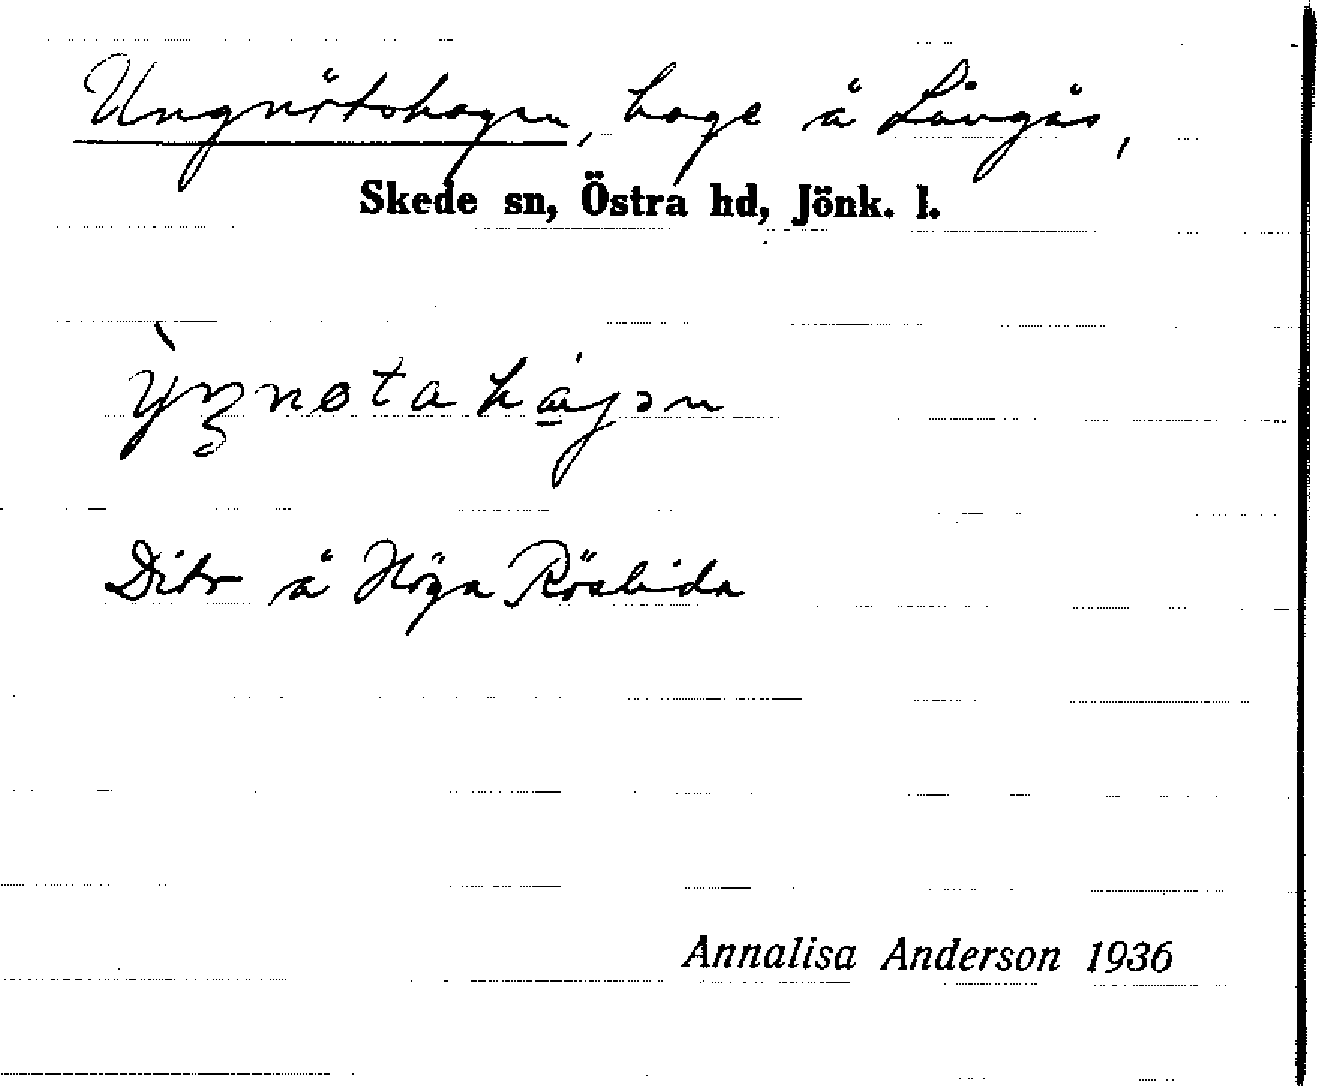 Ungnötshagen, hage å Lövgås,
Skede sn, Östra hd, Jönk. l.
ỳŋnøtahágən
Dito å Höga Röslida
Annalisa Anderson 1936